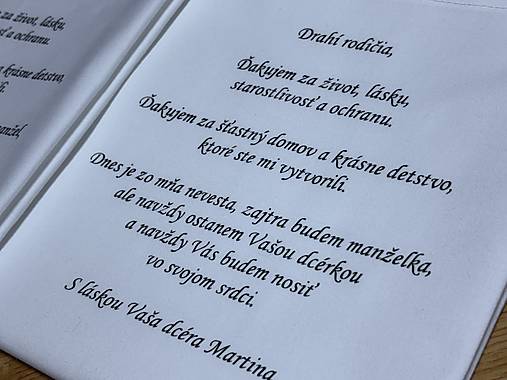 za život, lásku,
osť a ochranu.
a krásne detstvo,
li.
manžel,
Drahí rodičia,
Ďakujem za život, lásku,
starostlivosť a ochranu.
Ďakujem za šťastný domov a krásne detstvo,
ktoré ste mi vytvorili.
Dnes je zo mňa nevesta, zajtra budem manželka,
ale navždy ostanem Vašou dcérkou
a navždy Vás budem nosiť
vo svojom srdci.
S láskou Vaša dcéra Martina